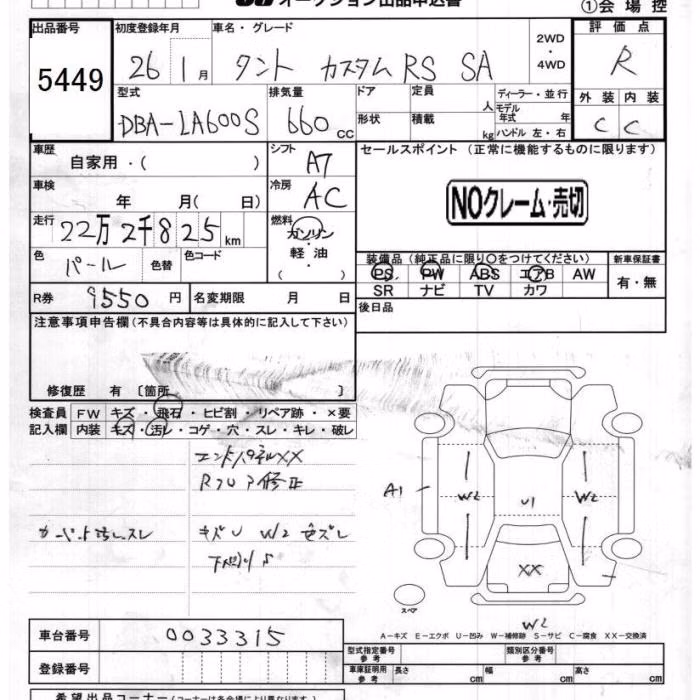 オークション出品申込書
①会場控
出品番号
5449
初度登録年月
26 1月
車名・グレード
タント カスタム RS SA
2WD
・
4WD
評価点
R
型式
DBA-LA600S
排気量
660 CC
ドア
定員
人
ディーラー・並行
形状
積載
kg
モデル年式 年
ハンドル 左・右
外装 内装
C C
車歴
自家用・( )
シフト
A7
セールスポイント (正常に機能するものに限ります)
NOクレーム・売切
車検
年 月( 日)
冷房
AC
走行
22万2千825km
燃料
ガソリン
・
軽油
( )
色
パール
色替
色コード
装備品(純正品に限り○をつけてください)
PS PW ABS エアB AW
SR ナビ TV カワ
新車保証書
有・無
R券
9550円
名変期限 月 日
後日品
注意事項申告欄(不具合内容等は具体的に記入して下さい)
修復歴 有 〔箇所 〕
検査員
記入欄
FW キズ・飛石・ヒビ割・リペア跡・×要
内装 キズ・汚レ・コゲ・穴・スレ・キレ・破レ
エンドパネルXX
Rフロア修正
キズU W2 色ズレ
A1
W2
U1
W2
XX
W2
スペア
A-キズ E-エクボ U-凹み W-補修跡 S-サビ C-腐食 XX-交換済
車台番号
0033315
登録番号
型式指定番号
参考
類別区分番号
参考
車庫証明用
参考
長さ cm
幅 cm
高さ cm
希望出品コーナー(コーナーは各会場により異なります)